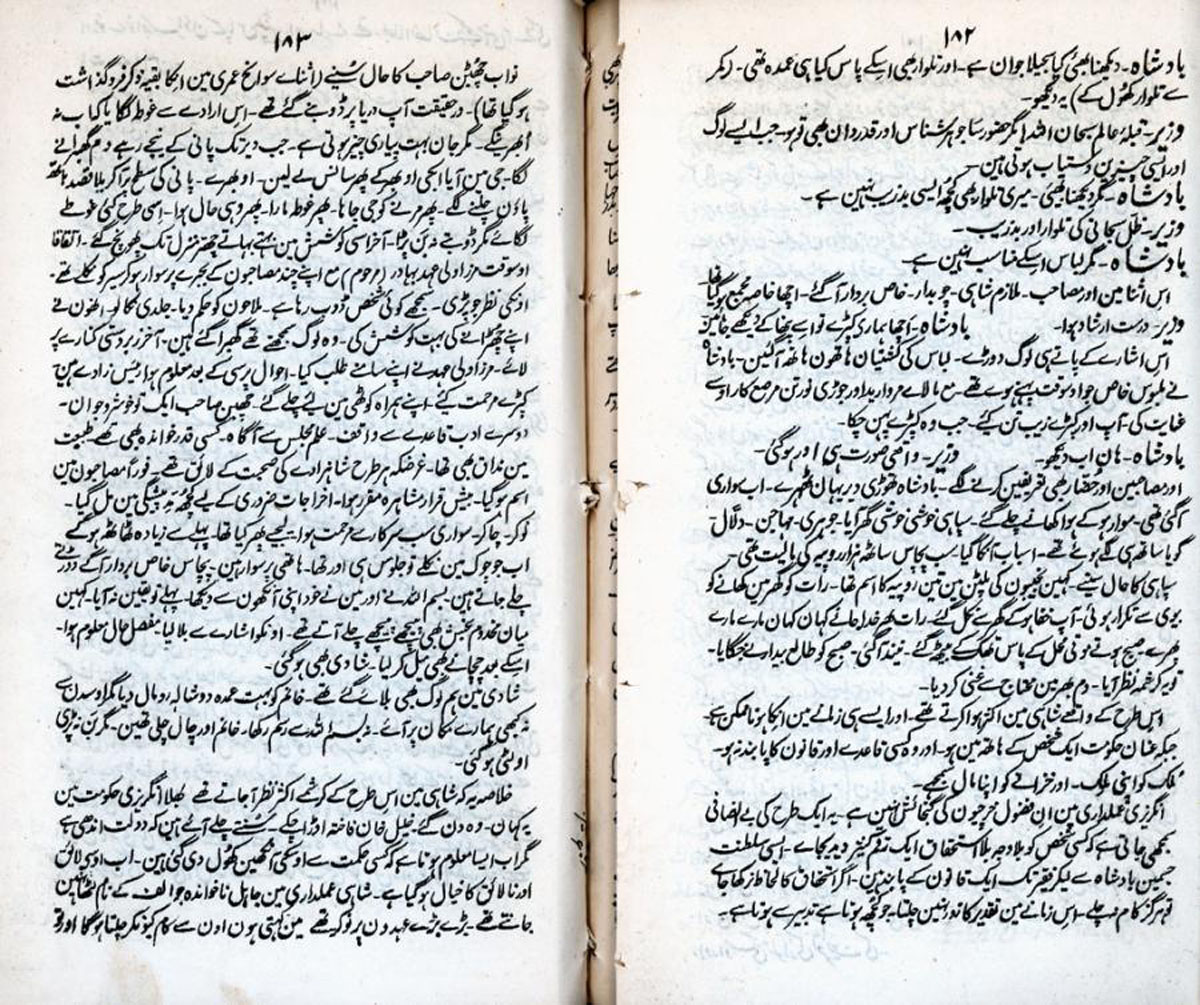 ۱۸۲
بادشاہ - دیکھنا بھئی کیا سجیلا جوان ہے - اور تلوار بھی اسکے پاس کیا ہی عمدہ تھی - (کمر
سے تلوار کھول کے) یہ دیکھو -
وزیر - قبلۂ عالم سبحان اللہ اگر حضور سا جوہر شناس اور قدردان بھی تو ہو - جب ایسے لوگ
اور ایسی چیزین دستیاب ہوتی ہین -
بادشاہ - مگر دیکھنا بھئی - میری تلوار بھی کچھ ایسی بدزیب نہین ہے -
وزیر - ظل سبحانی کی تلوار اور بدزیب -
بادشاہ - مگر لباس اسکے مناسب نہین ہے -
اس اثنا مین اور مصاحب - ملازم شاہی - چوبدار - خاص بردار آگئے - اچھا خاصہ مجمع ہو گیا تھا
وزیر - درست ارشاد ہوا - بادشاہ - اچھا ہماری کپڑے تو اسے پنھا کے دیکھے جائین
اس اشارے کے پاتے ہی لوگ دوڑے - لباس کی کشتیان ہاتھون ہاتھ آئین - بادشاہ
نے ملبوس خاص جو اوسوقت پہنے ہوے تھے - مع مالاے مروارید اور جوڑی نورتن مرصع کار اوسے
عنایت کی - آپ اور کپڑے زیب تن کیے - جب وہ کپڑے پہن چکا -
بادشاہ - ہان اب دیکھو - وزیر - واقعی صورت ہی اور ہو گئی -
اور مصاحبین اور حضار بھی تعریفین کرنے لگے - بادشاہ تھوڑی دیر یہان ٹھہرے - اب سواری
آگئی تھی - سوار ہو کے ہوا کھانے چلے گئے - سپاہی خوشی خوشی گھر آیا - جوہری - مہاجن - دلال
گویا ساتھ ہی لگے ہوئے تھے - اسباب آنکا گیا - سب پچاس ساٹھ ہزار روپیہ کی مالیت تھی -
سپاہی کا حال سنیے کہین نجیبون کی پلٹن مین تین روپیہ کا اسم تھا - رات کو گھر مین کھانے کو
بیوی سے تکرار ہوئی - آپ خفا ہو کے گھر سے نکل گئے - رات بھر خدا جانے کہان کہان مارے مارے
پھرے صبح ہوتے موتی محل کے پاس تھک کے بیٹھ گئے - نیند آگئی - صبح کو طالع بیدار نے جگایا -
تو یہ کرشمہ نظر آیا - دم بھر مین محتاج سے غنی کر دیا -
اس طرح کے واقعے شاہی مین اکثر ہوا کرتے تھے - اور ایسے ہی زمانے مین انکا ہونا ممکن ہے
جبکہ عنان حکومت ایک شخص کے ہاتھ مین ہو - اور وہ کسی قاعدے اور قانون کا پابند نہو -
ملک کو اپنی ملک - اور خزانے کو اپنا مال سمجھے -
انگریزی عملداری مین ان فضول خرچیون کی گنجائش نہین ہے - یہ ایک طرح کی بے انصافی
سمجھی جاتی ہے کہ کسی شخص کو بلا وجہ بلا استحقاق ایک رقم کثیر دیدیجاے - ایسی سلطنت
جسمین بادشاہ سے لیکر فقیر تک ایک قانون کے پابند ہین - اگر استحقاق کا لحاظ نہ رکھا جائے
تو ہرگز کام نہ چلے - اس زمانے مین تقدیر کا زور نہین چلتا - جو کچھ ہوتا ہے تدبیر سے ہوتا ہے -
۱۸۳
نواب چھبن صاحب کا حال سنیے (اثناے سوانح عمری مین انکا بقیہ ذکر فروگذاشت
ہو گیا تھا) - درحقیقت آپ دریا پر ڈوبنے گئے تھے - اس ارادے سے غوطہ لگایا کہ اب نہ
اُبھرینگے - مگر جان بہت پیاری چیز ہوتی ہے - جب دیر تک پانی کے نیچے رہے دم گھبرانے
لگا - جی مین آیا ابکی اوبھر کے پھر سانس لے لین - اوبھرے - پانی کی سطح پر آکر بلا قصد ہاتھ
پاؤن چلنے لگے - پھر مرنے کو جی چاہا - پھر غوطہ مارا - پھر وہی حال ہوا - اسی طرح کئی غوطے
لگائے مگر ڈوبتے نہ بن پڑا - آخر اسی کوشش مین بہتے بہاتے چھتر منزل تک پہونچ گئے - اتفاقاً
اوسوقت مرزا ولی عہد بہادر (مرحوم) مع اپنے چند مصاحبون کے بجرے پر سوار ہو کر سیر کو نکلے تھے -
اونکی نظر جو پڑی - سمجھے کوئی شخص ڈوب رہا ہے - ملاحون کو حکم دیا - جلدی نکالو - انھون نے
اپنے چھڑانے کی بہت کوشش کی - وہ لوگ سمجھے تھے گھبرا گئے ہین - آخر زبردستی کنارے پر
لائے - مرزا ولی عہد نے اپنے سامنے طلب کیا - احوال پرسی کے بعد معلوم ہوا رئیس زادے ہین
کپڑے مرحمت کیے - اپنے ہمراہ کوٹھی مین لیے چلے گئے - چھبن صاحب ایک تو خوشرو جوان -
دوسرے ادب قاعدے سے واقف - علم مجلس سے آگاہ - کسی قدر خواندہ بھی تھے طبیعت
مین مذاق بھی تھا - غرضکہ ہر طرح شاہزادے کی صحبت کے لائق تھے - فوراً مصاحبون مین
اسم ہو گیا - بیش قرار مشاہرہ مقرر ہوا - اخراجات ضروری کے لیے کچھ روپیہ پیشگی مین مل گیا -
نوکر - چاکر - سواری سب سرکار سے مرحمت ہوا - لیجیے پھر کیا تھا - پہلے سے زیادہ ٹھاٹھ ہو گئے
اب جو چوک مین نکلے تو جلوس ہی اور تھا - ہاتھی پر سوار ہین - پچاس خاص بردار آگے دوڑتے
چلے جاتے ہین - بسم اللہ نے اور مین نے خود اپنی آنکھون سے دیکھا - پہلے تو یقین نہ آیا - کہین
میان مخدوم بخش بھی پیچھے پیچھے چلے آتے تھے - اونکو اشارے سے بلا لیا - مفصل حال معلوم ہوا -
اسکے بعد چچا نے بھی میل کر لیا - شادی بھی ہو گئی -
شادی مین ہم لوگ بھی بلائے گئے تھے - خانم کو بہت عمدہ دوشالہ رومال دیا مگر اوس دن سے
نہ کبھی ہمارے مکان پر آئے - نہ بسم اللہ سے رسم رکھا - خانم اور چال چلی تھین - مگر بن نہ پڑی
اولٹی ہو گئی -
خلاصہ یہ کہ شاہی مین اس طرح کے کرشمے اکثر نظر آجاتے تھے بھلا انگریزی حکومت مین
یہ کہان - وہ دن گئے خلیل خان فاختہ اوڑا چکے - سنتے چلے آئے ہین کہ دولت اندھی ہے
مگر اب ایسا معلوم ہوتا ہے کہ کسی حکمت سے اوسکی آنکھین کھول دی گئی ہین - اب اوسے لائق
اور نالائق کا خیال ہو گیا ہے - شاہی عملداری مین جاہل ناخواندہ جو الف کے نام لٹھا نہین
جانتے تھے - بڑے بڑے عہدون پر نوکر تھے مین کہتی ہون اون سے کام کیونکر چلتا ہوگا اور تو